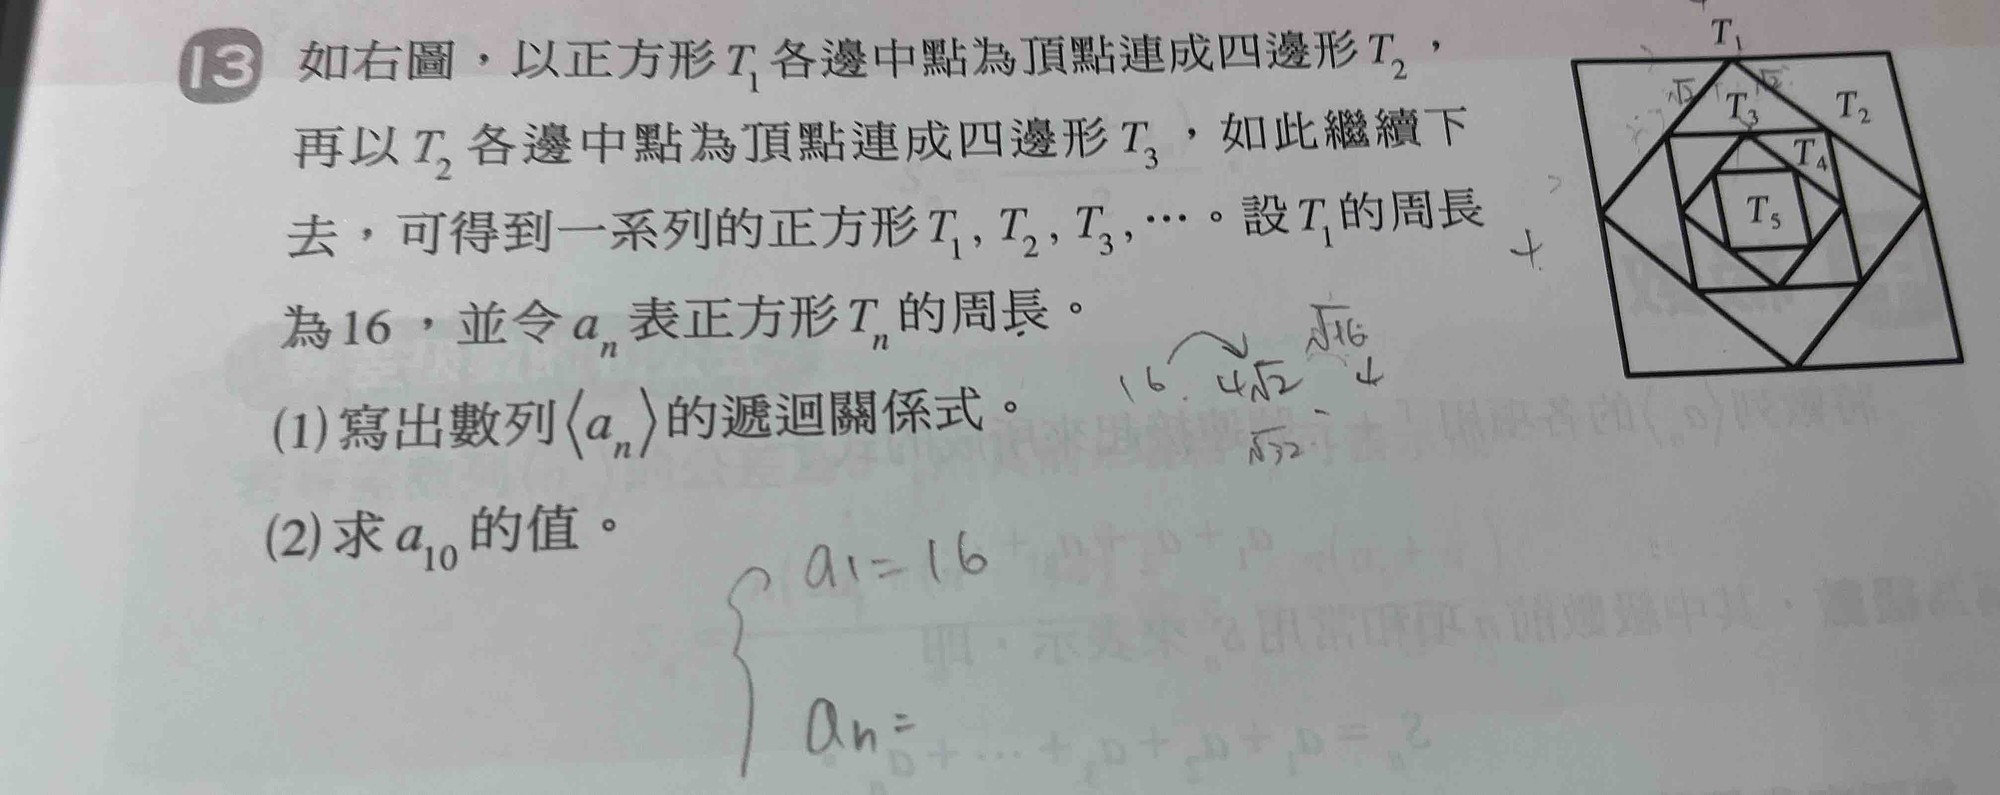 13 如右圖，以正方形T₁各邊中點為頂點連成四邊形T₂，
再以T₂各邊中點為頂點連成四邊形T₃，如此繼續下
去，可得到一系列的正方形T₁, T₂, T₃, …。設T₁的周長
為16，並令aₙ表正方形Tₙ的周長。
(1)寫出數列⟨aₙ⟩的遞迴關係式。
(2)求a₁₀的值。
T₁
√2 √2
T₃ T₂
T₄
T₅
√16
16 4√2 4
√32
a1=16
an=